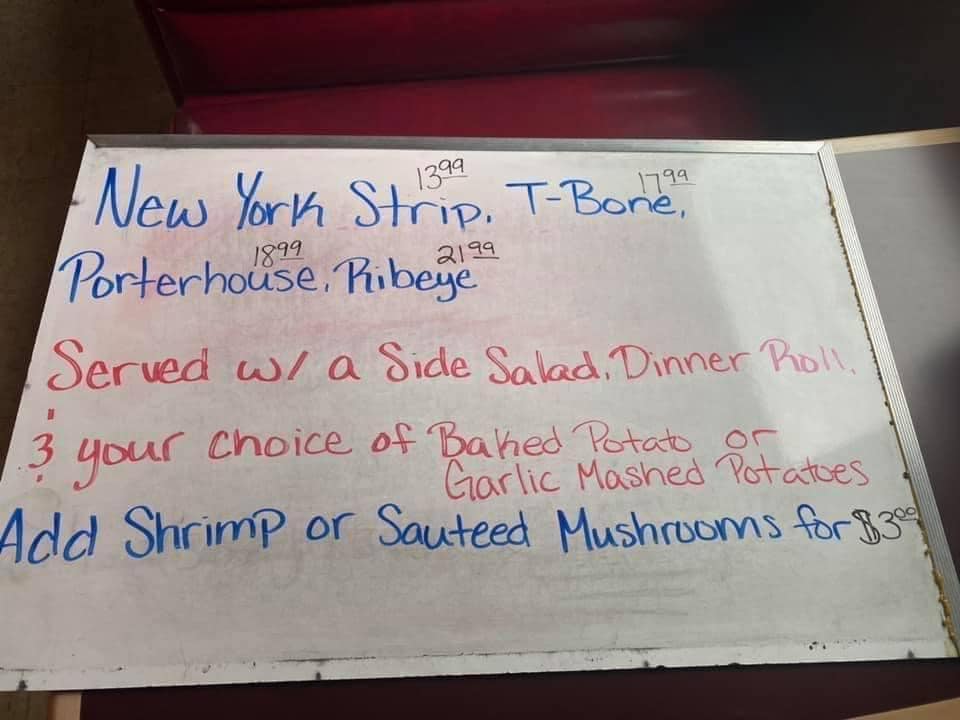 13.99 17.99
New York Strip, T-Bone,
18.99 21.99
Porterhouse, Ribeye
Served w/ a Side Salad, Dinner Roll,
& your choice of Baked Potato or
Garlic Mashed Potatoes
Add Shrimp or Sauteed Mushrooms for $3.00